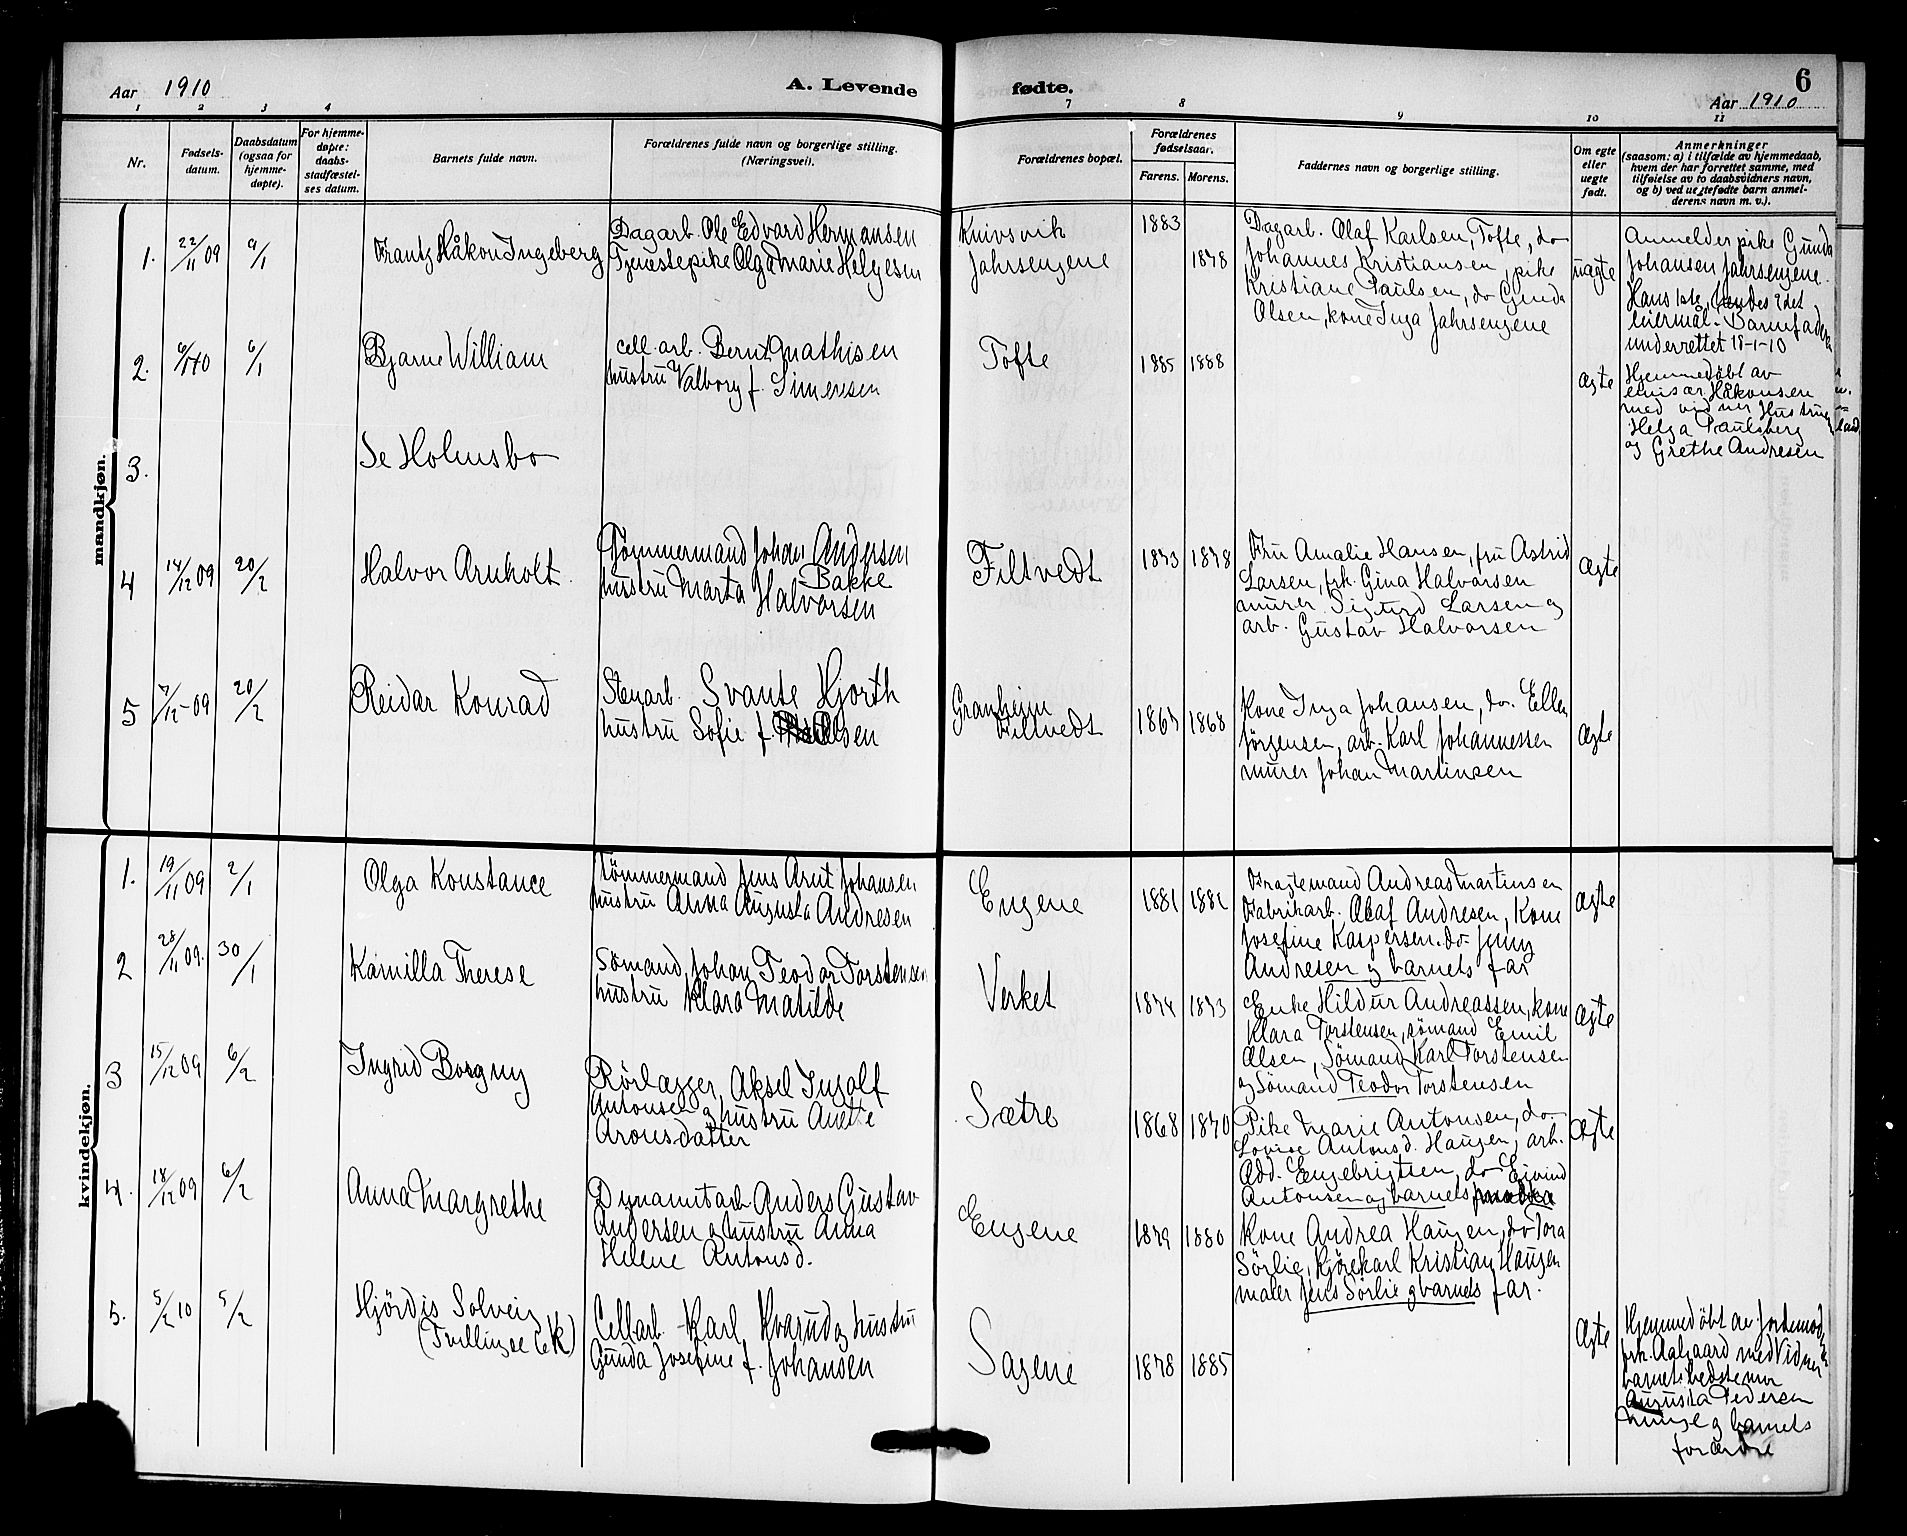 Aar 1910
A. Levende
fødte.
6
Aar 1910
1 2 3 4 7 8 9 10 11
Nr.
Fødsels-
datum.
Daabsdatum
(ogsaa for
hjemme-
døpte).
For hjemme-
døpte:
daabs-
stadfæstel-
ses datum.
Barnets fulde navn.
Forældrenes fulde navn og borgerlige stilling.
(Næringsvei).
Forældrenes bopæl.
Forældrenes
fødselsaar.
Farens. Morens.
Faddernes navn og borgerlige stilling.
Om egte
eller
uegte
født.
Anmerkninger
(saasom: a) i tilfælde av hjemmedaab,
hvem der har forrettet samme, med
tilføielse av to daabsvidners navn,
og b) ved uegtefødte barn anmel-
derens navn m. v.).
mandkjøn.
1. 22/11 09 9/1
Frantz Håkon Ingeberg
Dagarb. Ole Edvard Hermansen
Tjenestepike Olga Marie Helgesen
Knivsvik
Jahrsengene
1883
1878
Dagarb. Olaf Karlsen, Tofte, do
Johannes Kristiansen, pike
Kristiane Paulsen, do Gunda
Olsen, kone Inga Jahrsengene
uægte
Anmelder pike Gunda
Johansen Jahrsengene.
Hans 1ste, hendes 2det
leiermål. Barnefaderen
underrettet 18-1-10
2. 6/1 10 6/1
Bjarne William
Cell. arb. Bernt Mathisen
hustru Valborg f. Simensen
Tofte
1885 1888
ægte
Hjemmedöbt av
emisær Håkonsen
med vidner Hustru
Helga Paulsberg
og Grethe Andresen
3.
Se Holmsbo
4 14/12 09 20/2
Halvor Arnholt
Tømmermand Johan Andersen
Bakke
hustru Marta Halvorsen
Filtvedt
1873 1878
Fru Amalie Hansen, fru Astrid
Larsen, frk. Gina Halvorsen
murer Sigurd Larsen og
arb. Gustav Halvorsen
ægte
5 7/12-09 20/2
Reidar Konrad
Stenarb. Svante Hjorth
hustru Sofie f. Olsen
Granheim
Filtvedt
1867 1868
Kone Inga Johansen, do. Ellen
Jørgensen, arb. Karl Johannessen
murer Johan Martinsen
ægte
kvindekjøn.
1. 19/11 09 2/1
Olga Konstance
Tömmermand Jens Arnt Johansen
hustru Anna Augusta Andresen
Engene
1881 1881
Fragtemand Andreas Martinsen
Fabrikarb. Olaf Andresen, Kone
Josefine Kaspersen. do. Jenny
Andresen og barnets far
ægte
2 28/11 09. 30/1
Kamilla Therese
Sömand Johan Teodor Torstensen
hustru Klara Matilde
Verket
1874 1873
Enke Hildur Andreassen, kone
Klara Torstensen, sömand Emil
Olsen, Sömand Karl Torstensen
og Sömand Teodor Torstensen
ægte
3 15/12 09 6/2
Ingrid Borgny
Rörlægger Aksel Ingolf
Antonsen og hustru Anette
Aronsdatter
Sætre
1868 1870
Pike Marie Antonsen, do
Lovise Antonsd. Haugen, arb.
Add. Engebrigtsen, do Eivind
Antonsen og barnets
ægte
4. 18/12 09 6/2
Anna Margrethe
Dynamitarb Anders Gustav
Andersen og hustru Anna
Helene Antonsd.
Engene
1879 1880
Kone Andrea Haugen, do Tora
Sörlie, Kjörekarl Kristian Haugen
maler Jens Sörlie og barnets far.
5. 5/2 10 5/2
Hjördis Solveig
(Tvillinge)
Cellarb. Karl Kvarud og hustru
Gunda Josefine f. Johansen
Sagene
1878 1885
ægte
Hjemmedöbt av Jordemoder
frk. Aalgaard med Vidner
barnets bedstemor
Augusta Pedersen
og barnets
forældre